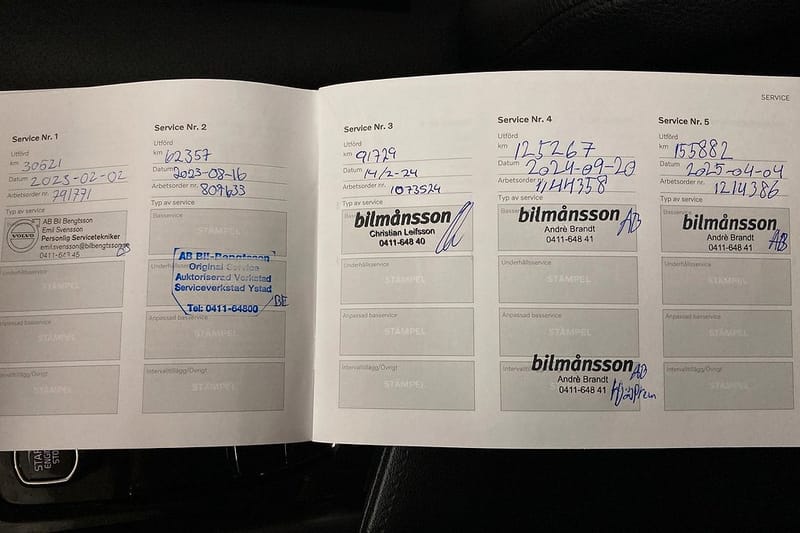 SERVICE
Service Nr. 1
Utförd
km 30621
Datum 2023-02-02
Arbetsorder nr. 791771
Typ av service
VOLVO
AB Bil Bengtsson
Emil Svensson
Personlig Servicetekniker
emil.svensson@bilbengtsson.se
0411-643 45
STÄMPEL
STÄMPEL
Intervalltillägg/Övrigt
STÄMPEL
Service Nr. 2
Utförd
km 62357
Datum 2023-08-16
Arbetsorder nr. 809633
Typ av service
Basservice
STÄMPEL
AB Bil-Bengtsson
Original Service
Auktoriserad Verkstad
Serviceverkstad Ystad
Tel: 0411-64800
BE
Anpassad basservice
STÄMPEL
Intervalltillägg/Övrigt
STÄMPEL
Service Nr. 3
Utförd
km 91729
Datum 14/2-24
Arbetsorder nr. 1073524
Typ av service
bilmånsson
Christian Leifsson
0411-648 40
Underhållsservice
STÄMPEL
Anpassad basservice
STÄMPEL
Intervalltillägg/Övrigt
STÄMPEL
Service Nr. 4
Utförd
km 125267
Datum 2024-09-20
Arbetsorder nr. 1144358
Typ av service
bilmånsson AB
Andrè Brandt
0411-648 41
Underhållsservice
STÄMPEL
Anpassad basservice
STÄMPEL
bilmånsson AB
Andrè Brandt
0411-648 41
Service Nr. 5
Utförd
km 155882
Datum 2025-04-04
Arbetsorder nr. 1214386
Typ av service
bilmånsson
Andrè Brandt AB
0411-648 41
Underhållsservice
STÄMPEL
Anpassad basservice
STÄMPEL
Intervalltillägg/Övrigt
STÄMPEL
START
ENGINE
STOP